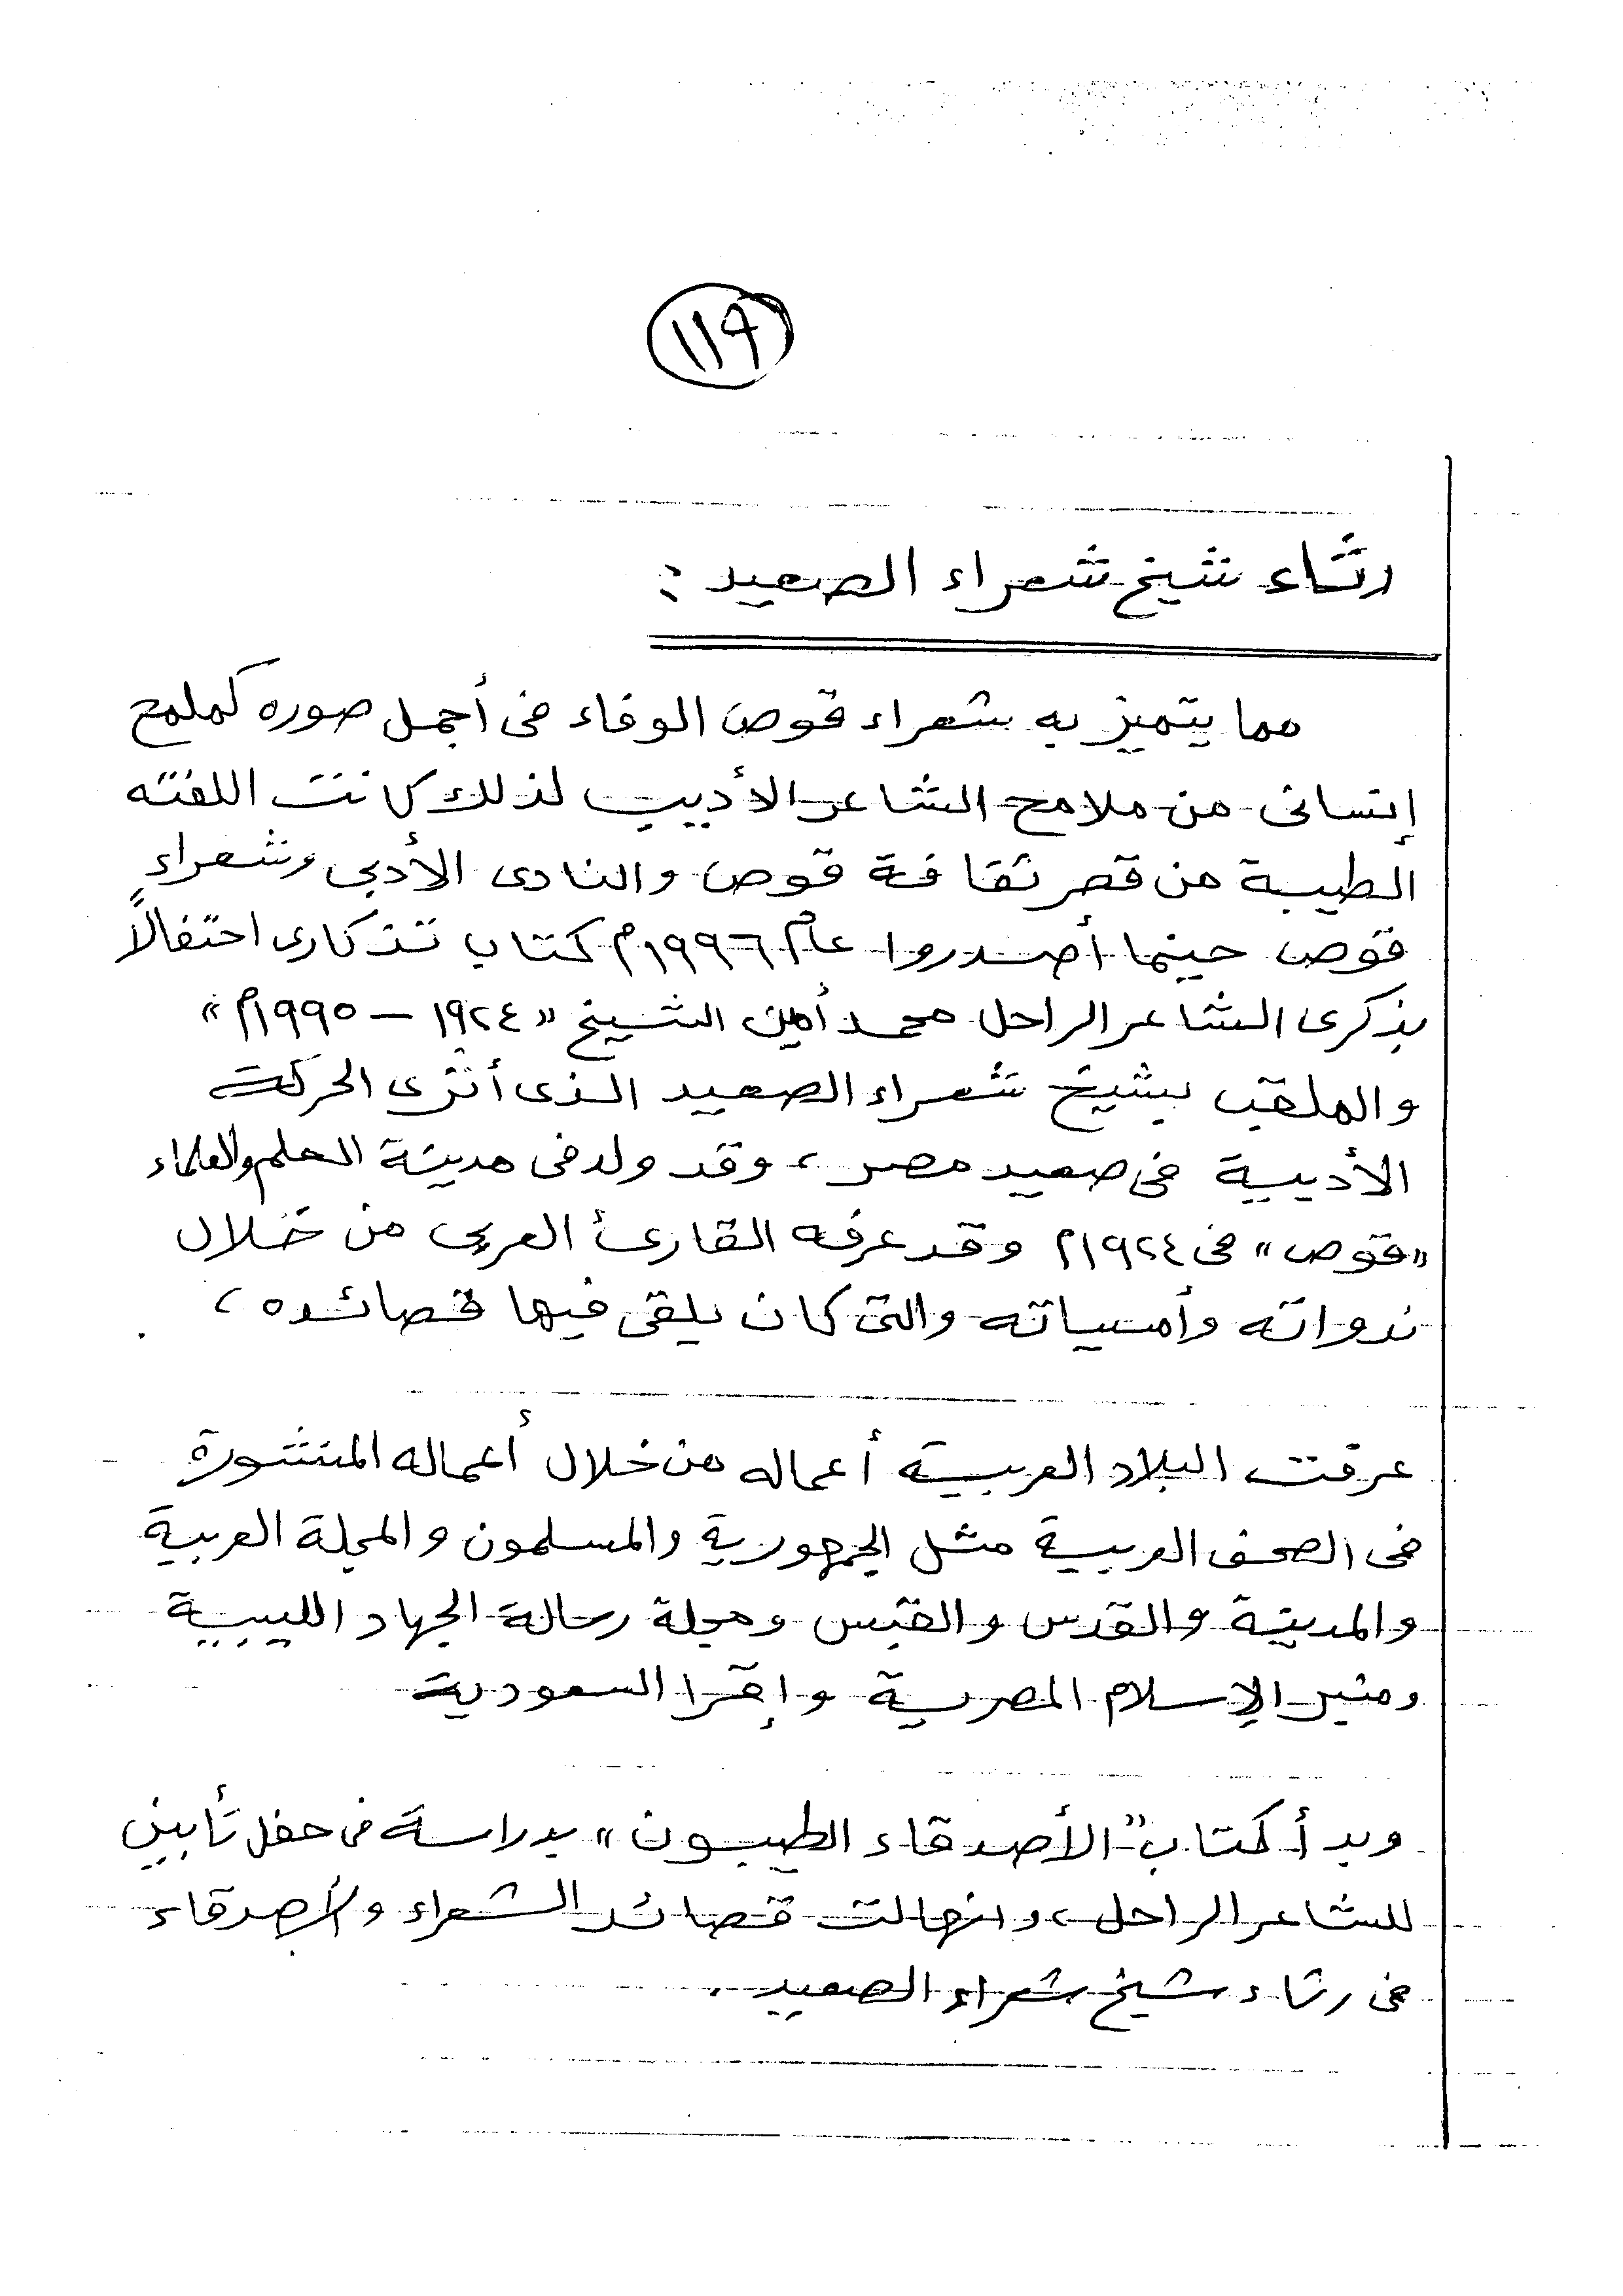 ١١٩
رثاء شيخ شعراء الصعيد :
مما يتميز به شعراء قوص الوفاء فى أجمل صوره كملمح
إنسانى من ملامح الشاعر الأديب لذلك كانت اللفته
الطيبة من قصر ثقافة قوص والنادى الأدبى وشعراءِ
قوص حينما أصدروا عام ١٩٩٦م كتاب تذكارى احتفالاً
بذكرى الشاعر الراحل محمد أمين الشيخ «١٩٢٤ – ١٩٩٥م»
والملقب بشيخ شعراء الصعيد الذى أثرى الحركة
الأدبية فى صعيد مصر ، وقد ولد فى مدينة العلم والعلماء
«قوص» فى ١٩٢٤م وقد عرفه القارئ العربى من خلال
ندواته وأمسياته والتى كان يلقى فيها قصائده ،
عرفت البلاد العربية أعماله من خلال أعماله المنشورة
فى الصحف العربية مثل الجمهورية والمسلمون والمجلة العربية
والمدينة والقدس والقبس ومجلة رسالة الجهاد الليبية
ومنبر الإسلام المصرية وإقرا السعودية
وبدأ كتاب "الأصدقاء الطيبون" بدراسة فى حفل تأبين
للشاعر الراحل ، وانهالت قصائد الشعراء والأصدقاء
فى رثاء شيخ شعراء الصعيد .